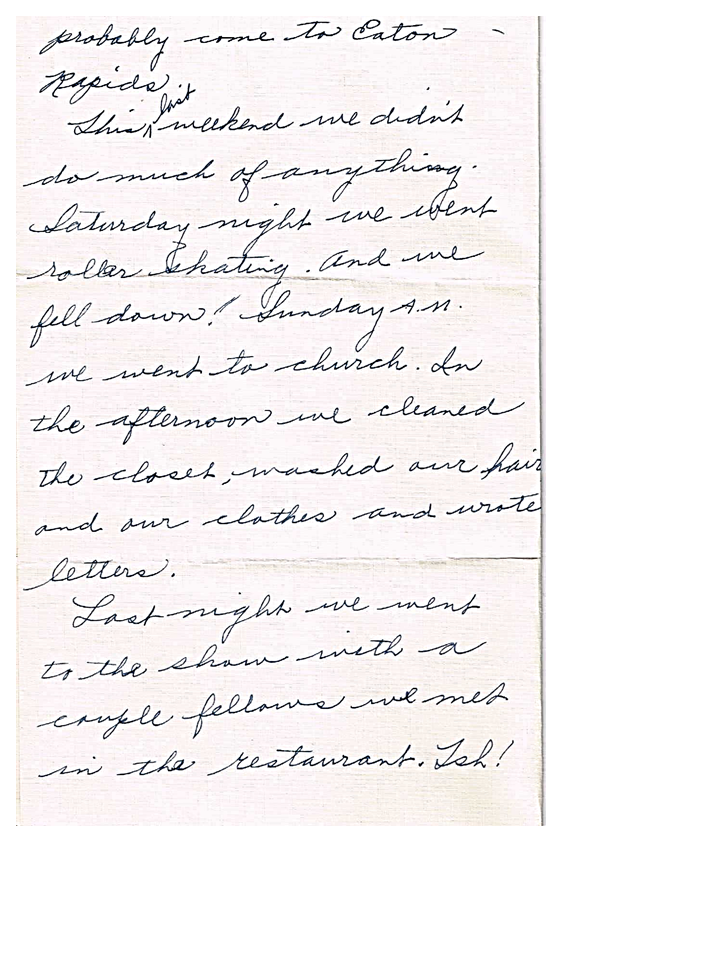 probably come to Eaton -
Rapids.
This ^ last weekend we didn't
do much of anything.
Saturday night we went
roller skating. And we
fell down! Sunday A.M.
we went to church. In
the afternoon we cleaned
the closet, washed our hair
and our clothes and wrote
letters.
Last night we went
to the show with a
couple fellows we met
in the restaurant. Ish!